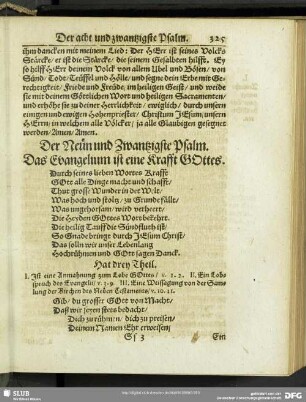 Der acht und zwantzigste Psalm. 325
ihm dancken mit meinem Lied: Der HErr ist seines Volcks
Stärcke/ er ist die Stärcke/ die seinem Gesalbten hilfft. Ey
so hilff HErr deinem Volck von allem Ubel und Bösen/ von
Sünd/ Tode/ Teuffel und Hölle/ und segne dein Erbe mit Ge-
rechtigkeit/ Friede und Freüde/ im heiligen Geist/ und weide
sie mit deinem Göttlichen Wort und heiligen Sacramenten/
und erhöhe sie zu deiner Herrlichkeit/ ewiglich/ durch unsern
einigen und ewigen Hohenpriester/ Christum JEsum/ unsern
HErrn/ in welchem alle Völcker/ ja alle Glaubigen gesegnet
werden/ Amen/ Amen.
Der Neün und Zwantzigste Psalm.
Das Evangelium ist eine Krafft GOttes.
Durch seines lieben Wortes Krafft
GOtt alle Dinge macht und schafft/
Thut grosse Wunder in der Welt/
Was hoch und stoltz/ zu Grunde fällt/
Was ungehorsam/ wird verheert/
Die Heyden GOttes Wort bekehrt.
Die heilig Tauff die Sündfluth ist/
So Gnade bringt durch JEsum Christ/
Das solln wir unser Lebenlang
Hochrühmen und GOtt sagen Danck.
Hat drey Theil.
I. Ist eine Anmahnung zum Lobe GOttes/ v. 1. 2. II. Ein Lob-
spruch des Evangelii/ v. 3-9. III. Eine Weissagung von der Sam-
lung der Kirchen des Neuen Testaments/ v. 10. 11.
Gib/ du grosser GOtt von Macht/
Daß wir seyen stets bedacht/
Dich zu rühmen/ dich zu preisen/
Deinem Namen Ehr erweisen/
Sf 3 Ein
SLUB
DFG